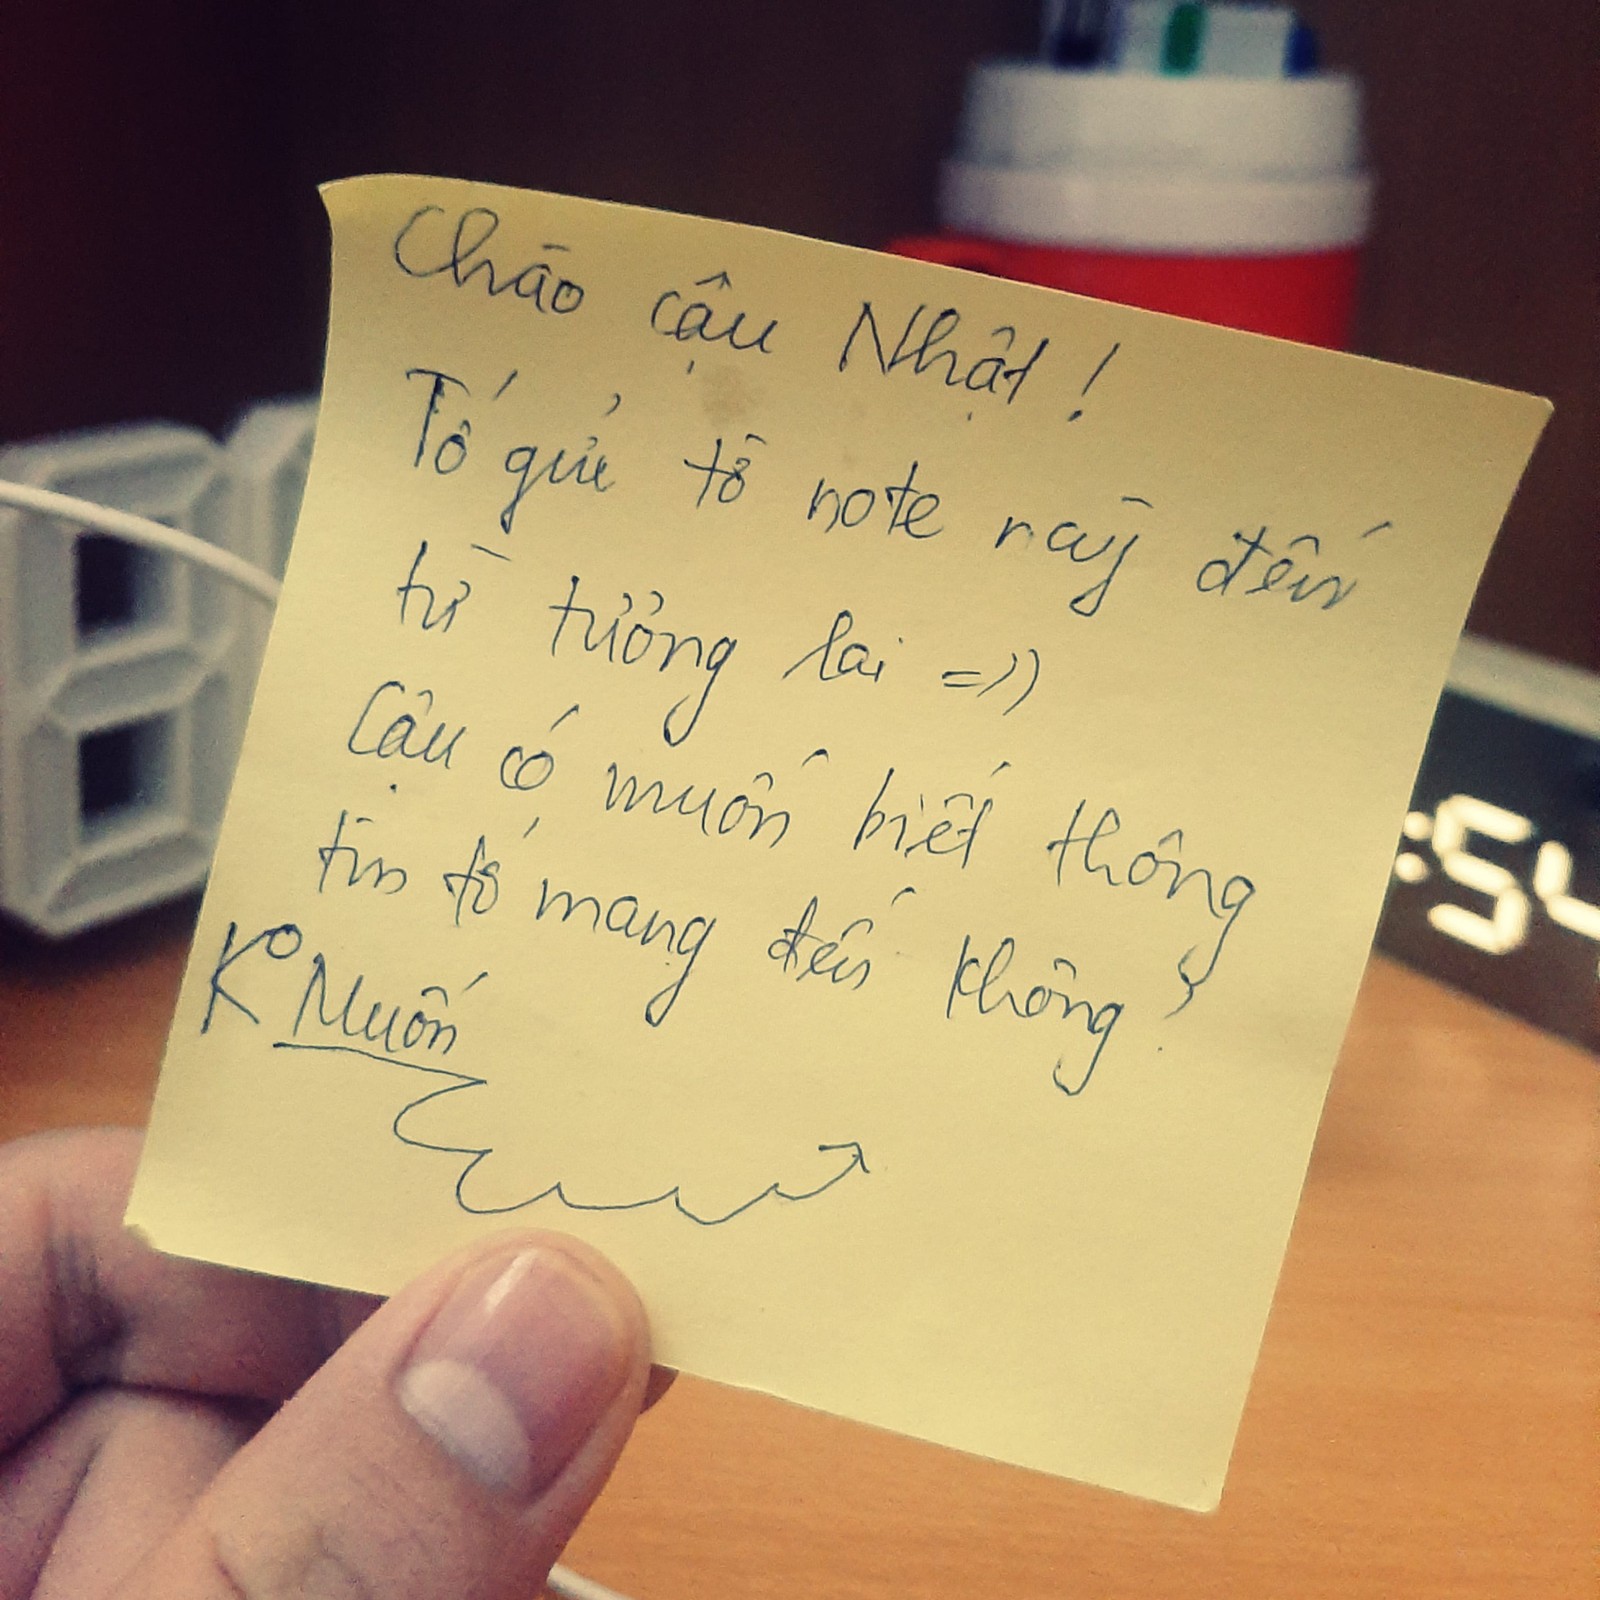 Chào cậu Nhật!
Tớ gửi tờ note này đến
từ tương lai =))
Cậu có muốn biết thông
tin tớ mang đến không?
K° Muốn
:54